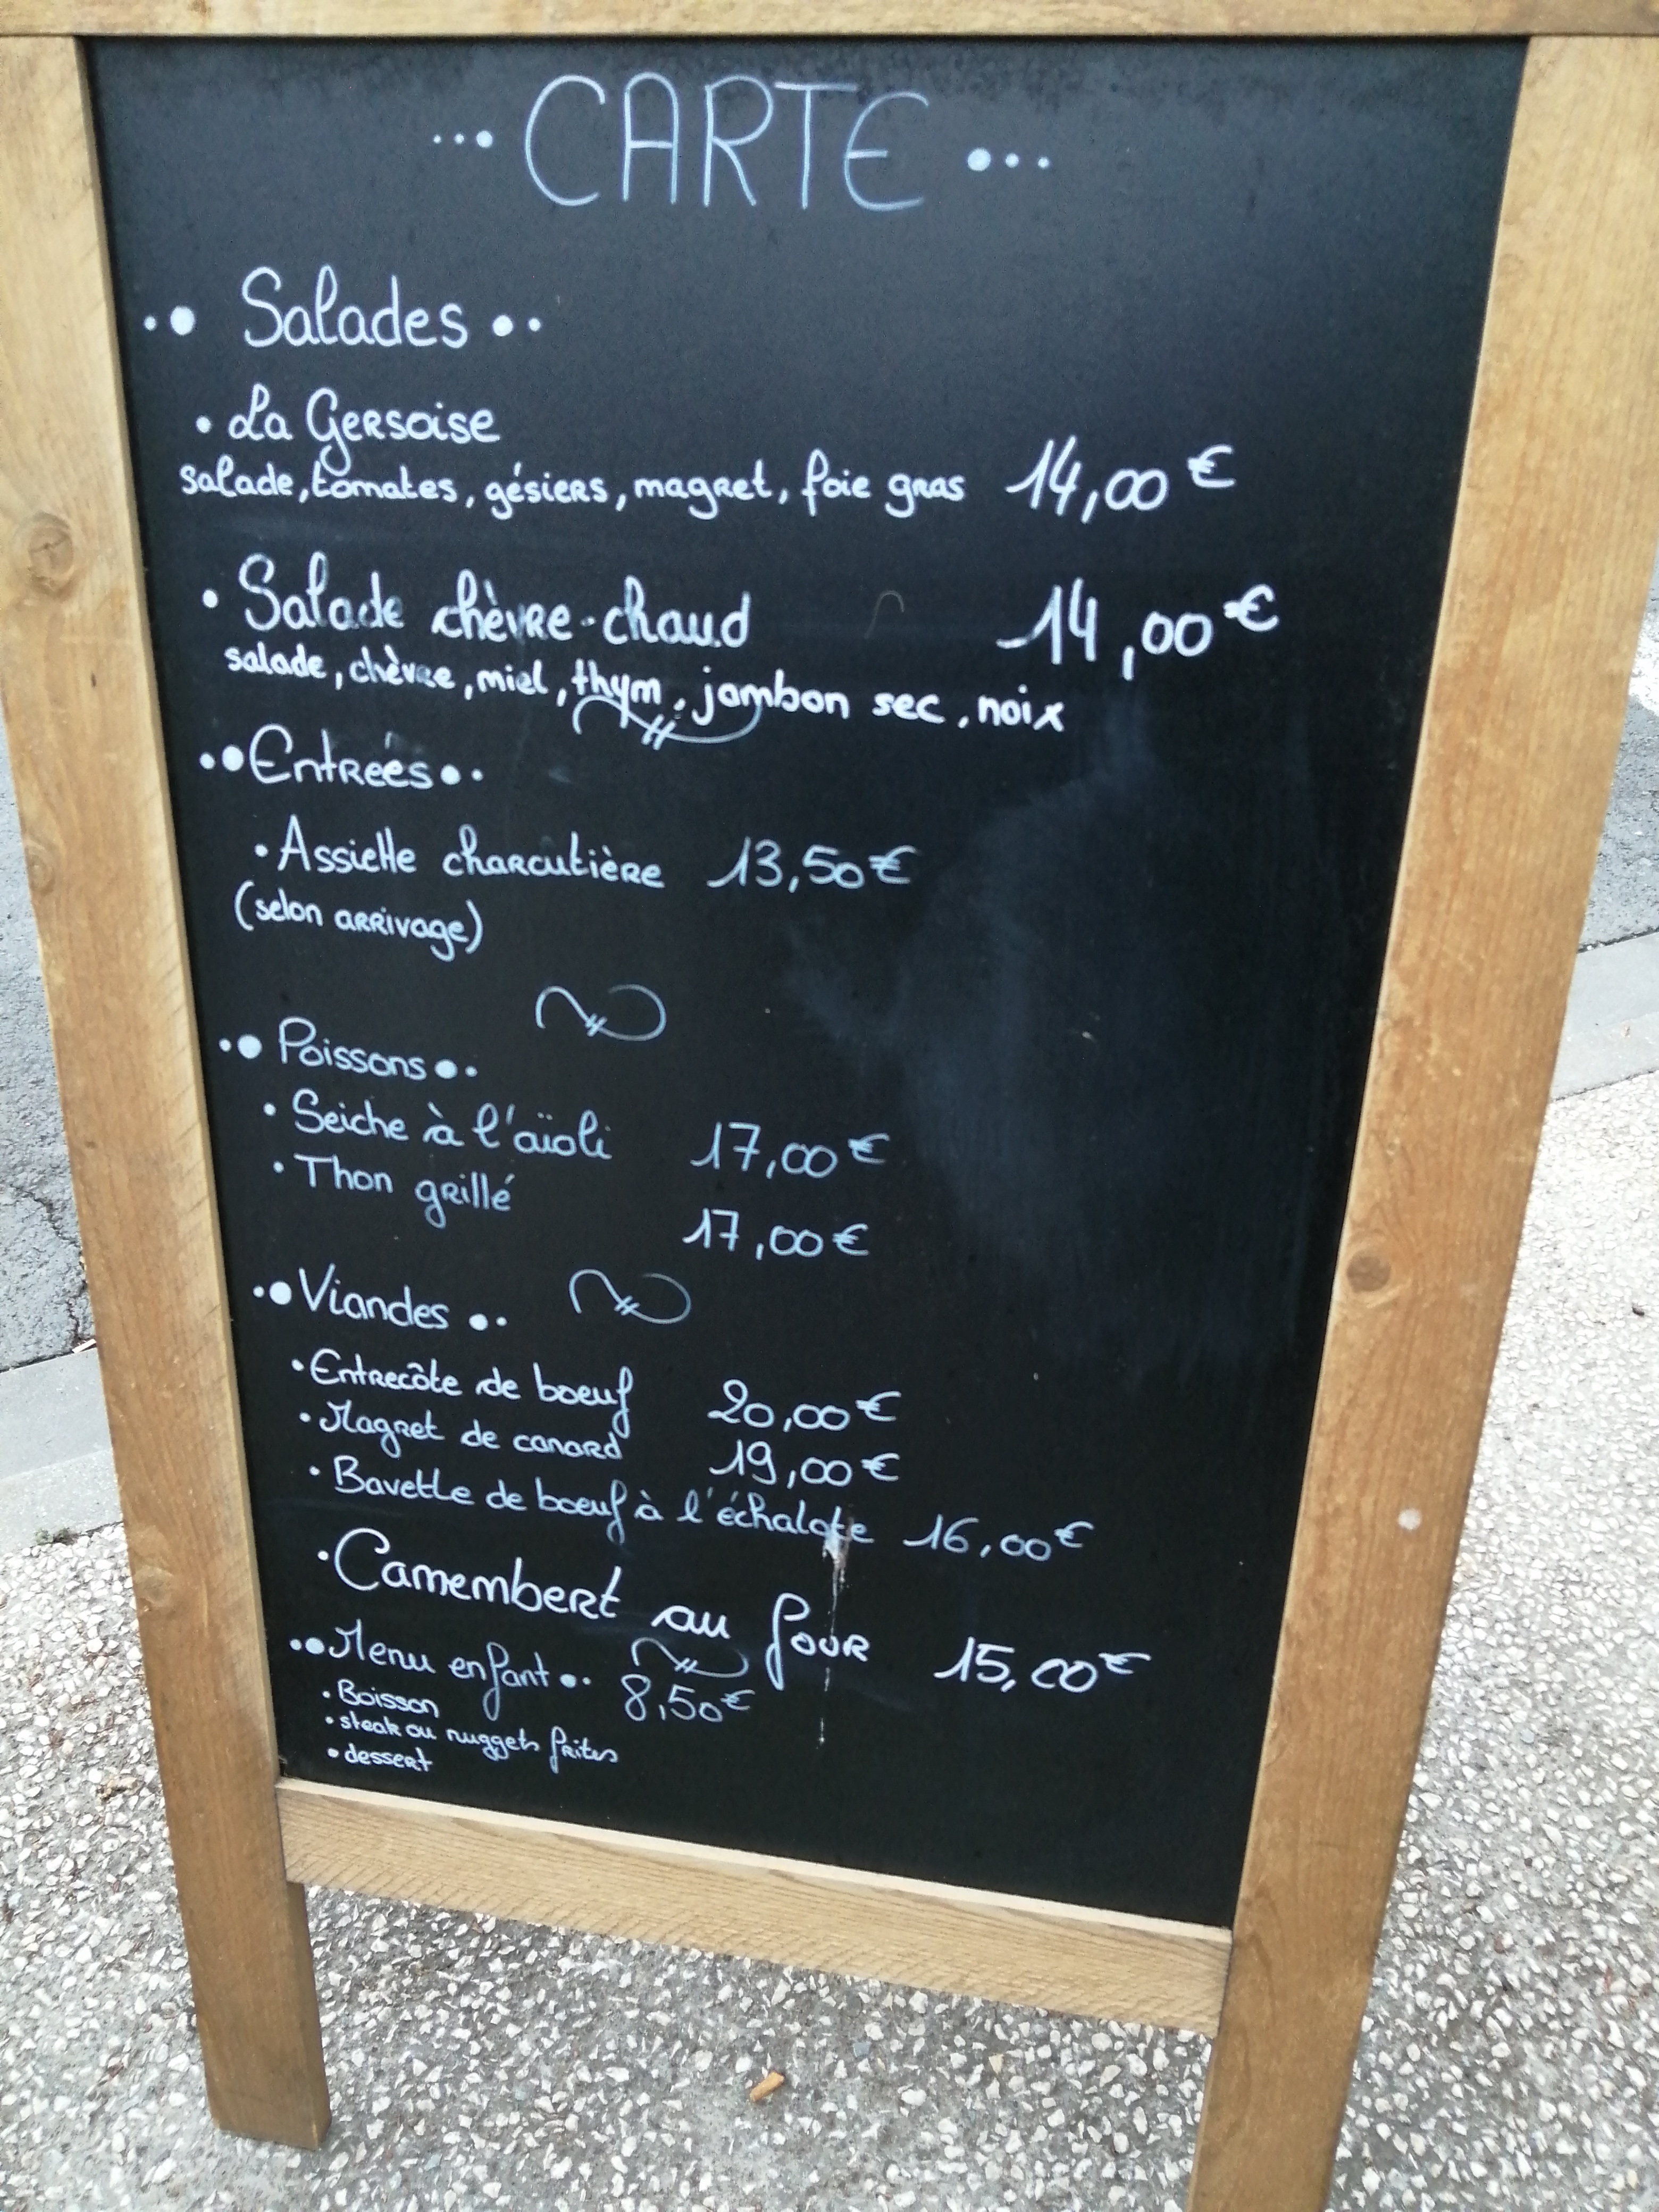 CARTE
Salades
• La Gersoise
salade, tomates, gésiers, magret, foie gras 14,00 €
• Salade chèvre-chaud 14,00 €
salade, chèvre, miel, thym, jambon sec, noix
Entrées
• Assiette charcutière 13,50 €
(selon arrivage)
Poissons
• Seiche à l'aïoli 17,00 €
• Thon grillé
17,00 €
Viandes
• Entrecôte de boeuf 20,00 €
• Magret de canard 19,00 €
• Bavette de boeuf à l'échalote 16,00 €
• Camembert au four 15,00 €
Menu enfant 8,50 €
• Boisson
• steak ou nuggets frites
• dessert